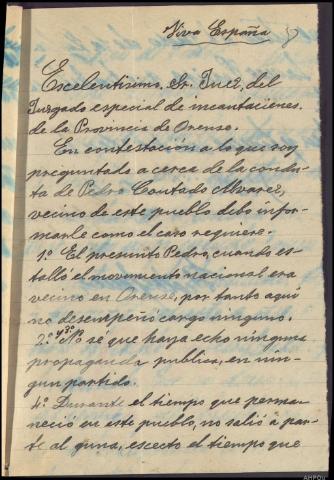 Viva España
Escelentisimo. Sr. Juez, del
Juzgado especial de incautaciones.
de la Provincia de Orense.
En contestación a lo que soy
preguntado a cerca de la condu-
ta de Pedro Contado Alvarez,
vecino de este pueblo debo infor-
marle como el caso requiere.
1º El presunto Pedro, cuando es-
talló el movimiento nacional era
vecino en Orense, por tanto aquí
no desempeñó cargo ninguno.
2º y 3º No sé que haya echo ninguna
propaganda publica, en nin-
gun partido.
4º Durante el tiempo que perma-
neció en este pueblo, no salió a par-
te al guna, escecto el tiempo que
AHPOu